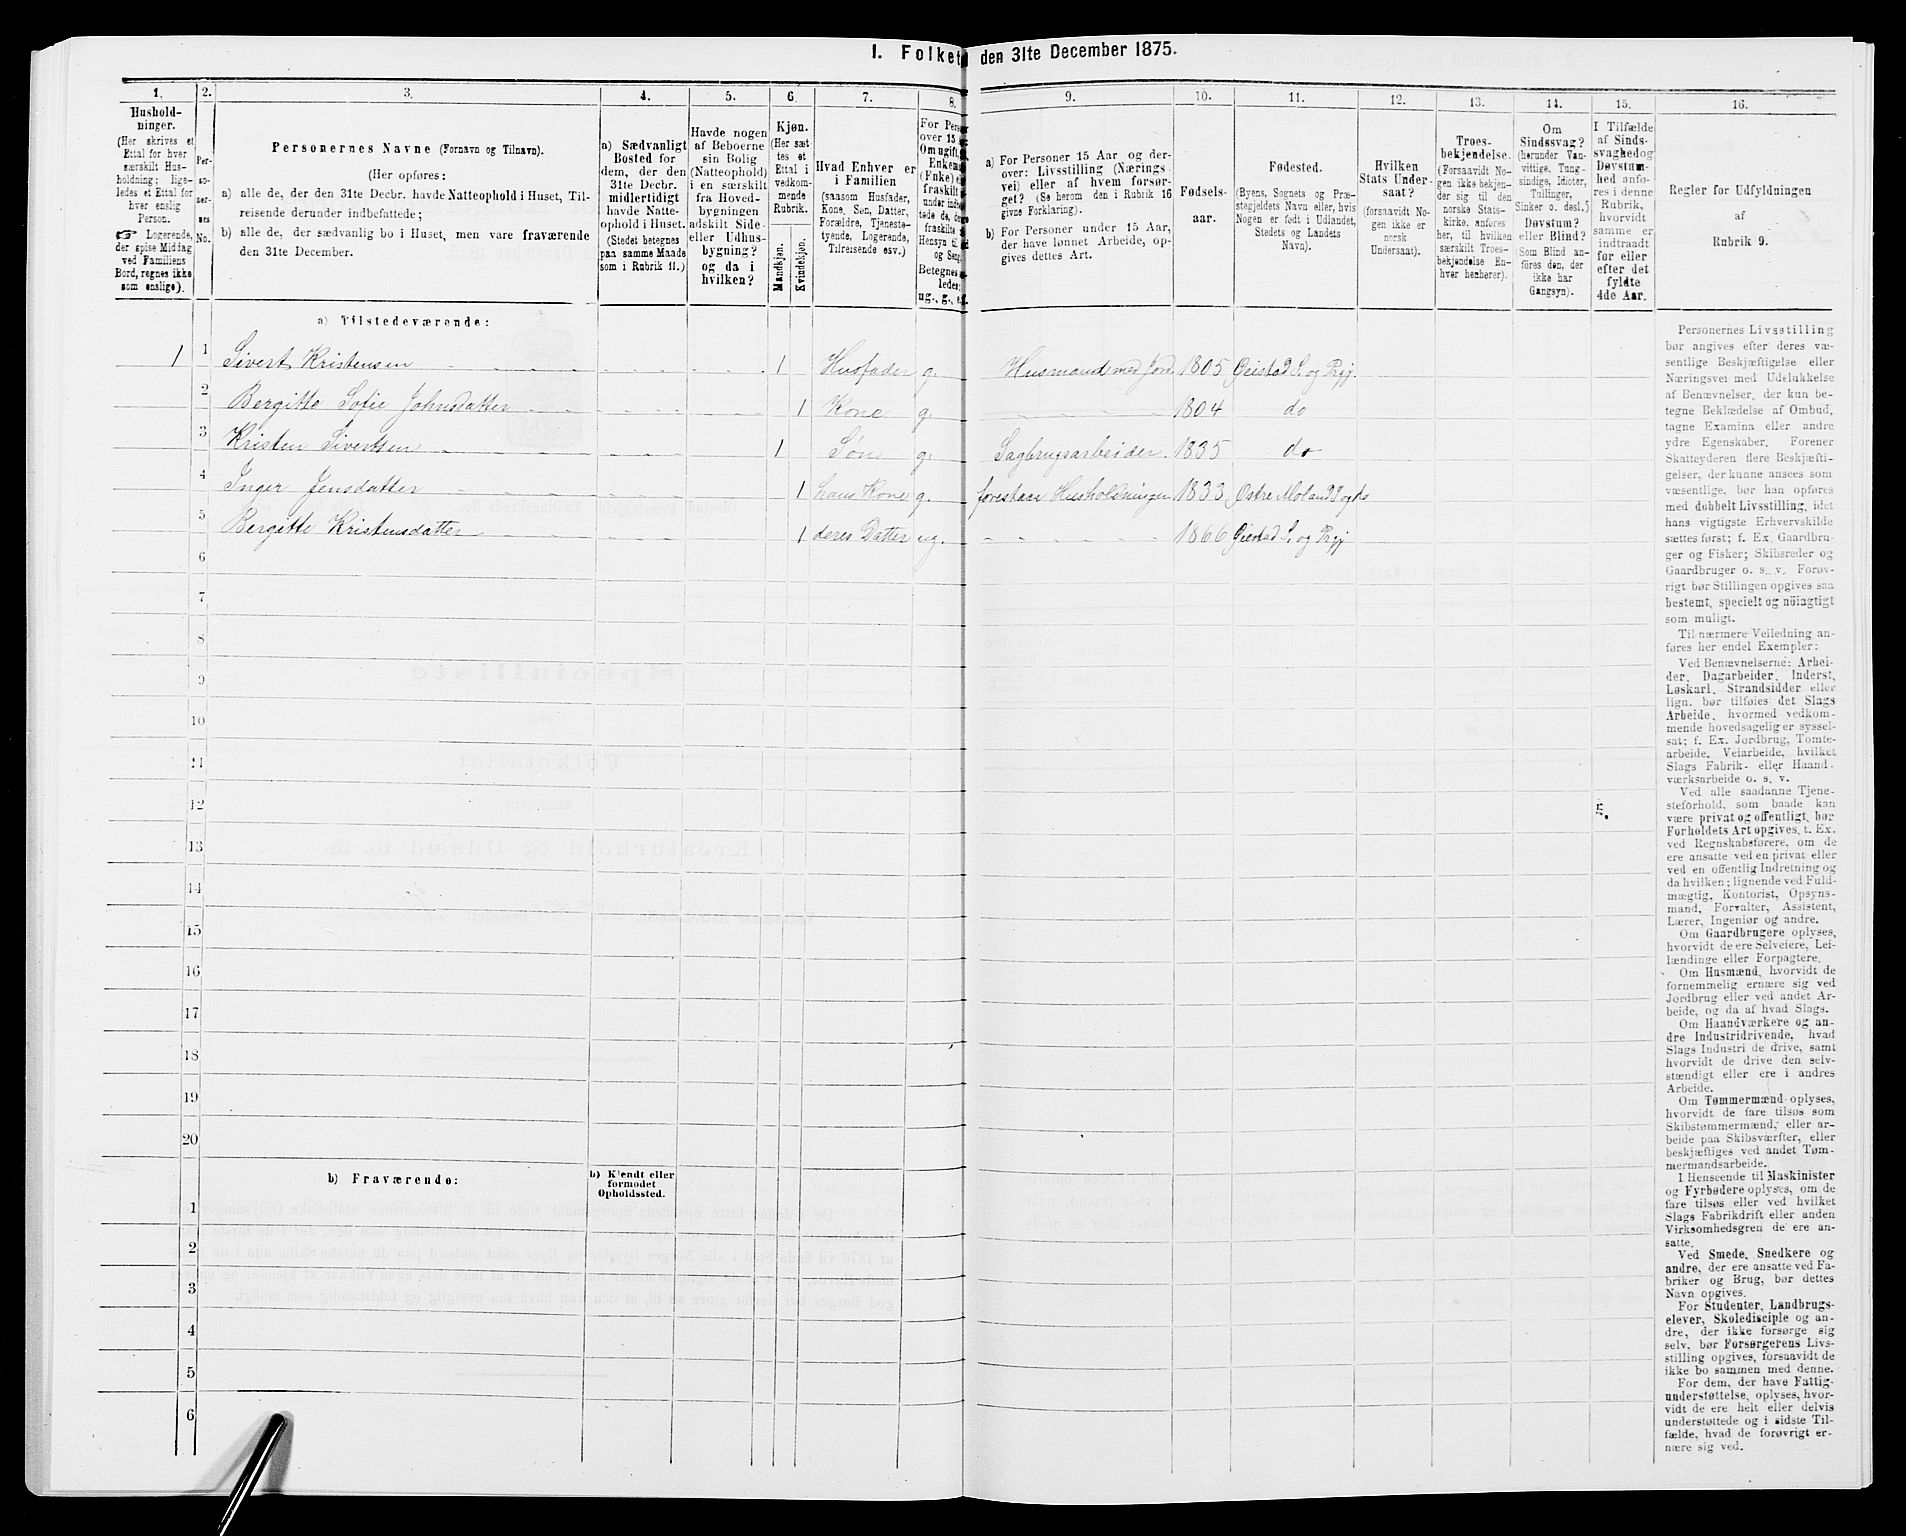 I. Folket den 31te December 1875.
1. 2. 3. 4. 5. 6. 7. 8. 9. 10. 11. 12. 13. 14. 15. 16.
Hushold-
ninger.
(Her skrives et
Ettal for hver
særskilt Hus-
holdning; lige-
ledes et Ettal for
hver enslig
Person.
☞ Logerende,
der spise Middag
ved Familiens
Bord, regnes ikke
som enslige).
Per-
so-
ner-
nes
No.
Personernes Navne (Fornavn og Tilnavn).
(Her opføres:
a) alle de, der den 31te Decbr. havde Natteophold i Huset, Til-
reisende derunder indbefattede;
b) alle de, der sædvanlig bo i Huset, men vare fraværende
den 31te December.
a) Sædvanligt
Bosted for
dem, der den
31te Decbr.
midlertidigt
havde Natte-
ophold i Huset.
(Stedet betegnes
paa samme Maade
som i Rubrik 11.)
Havde nogen
af Beboerne
sin Bolig
(Natteophold)
i en særskilt
fra Hoved-
bygningen
adskilt Side-
eller Udhus-
bygning?
og da i
hvilken?
Kjøn.
(Her sæt
tes et
Ettal i
vedkom-
mende
Rubrik.
Mandkjøn.
Kvindekjøn.
Hvad Enhver er
i Familien
(saasom Husfader,
Kone, Søn, Datter,
Forældre, Tjeneste-
tyende, Logerende,
Tilreisende osv.).
For Pers
over 15 
Om ugift,
Enkem
(Enke) e
fraskilt
under indt
tede de, de
fraskilte
Hensyn ti
og Seng.
Betegnes
ledes:
ug., g., e.
a) For Personer 15 Aar og der-
over: Livsstilling (Nærings-
vei) eller af hvem forsør-
get? (Se herom den i Rubrik 16
givne Forklaring).
b) For Personer under 15 Aar,
der have lønnet Arbeide, op-
gives dettes Art.
Fødsels-
aar.
Fødested.
(Byens, Sognets og Præ-
stegjeldets Navn eller, hvis
Nogen er født i Udlandet,
Stedets og Landets
Navn).
Hvilken
Stats Under-
saat?
(forsaavidt No-
gen ikke er
norsk
Undersaat).
Troes-
bekjendelse.
(Forsaavidt No-
gen ikke bekjen-
der sig til den
norske Stats-
kirke, anføres
her, til hvilken
særskilt Troes-
bekjendelse En-
hver henhører).
Om
Sindssvag?
(herunder Van-
vittige, Tung-
sindige, Idioter,
Tullinger,
Sinker o. desl.)
Døvstum?
eller Blind?
(Som Blind an-
føres den, der
ikke har
Gangsyn).
I Tilfælde
af Sinds-
svaghed og
Døvstum-
hed anfø-
res i denne
Rubrik,
hvorvidt
samme er
indtraadt
før eller
efter det
fyldte
4de Aar.
Regler for Udfyldningen
af
Rubrik 9.
a) Tilstedeværende:
1 1 Sivert Kristensen 1 Husfader g. Husmand med Jord 1805 Øiestad S. og Prgj.
2 Bergitte Sofie Johnsdatter 1 Kone g. 1804 do
3 Kristen Sivertsen 1 Søn g. Sagbrugsarbeider 1835 do
4 Inger Jensdatter 1 hans Kone g. forestaar Husholdningen 1833 Østre Moland S og do
5 Bergitte Kristensdatter 1 deres Datter ug. 1866 Øiestad S. og Prgj
6
7
8
9
10
11
12
13
14
15
16
17
18
19
20
5.
b) Fraværende:
b) Kjendt eller
formodet
Opholdssted.
1
2
3
4
5
6
Personernes Livsstilling
bør angives efter deres væ-
sentlige Beskjæftigelse eller
Næringsvei med Udelukkelse
af Benævnelser, der kun be-
tegne Beklædelse af Ombud,
tagne Examina eller andre
ydre Egenskaber. Forener
Skatteyderen flere Beskjæfti-
gelser, der kunne ansees som
væsentlige, bør han opføres
med dobbelt Livsstilling, idet
hans vigtigste Erhvervskilde
sættes først; f. Ex. Gaardbru-
ger og Fisker; Skibsreder og
Gaardbruger o. s. v. Forøv-
rigt bør Stillingen opgives saa
bestemt, specielt og nöiagtigt
som muligt.
Til nærmere Veiledning an-
føres her endel Exempler:
Ved Benævnelserne: Arbei-
der, Dagarbeider, Inderst,
Løskarl, Strandsidder eller
lign. bør tilføies det Slags
Arbeide, hvormed vedkom-
mende hovedsagelig er syssel-
sat; f. Ex. Jordbrug, Tomte-
arbeide, Veiarbeide, hvilket
Slags Fabrik- eller Haand-
værksarbeide o. s. v.
Ved alle saadanne Tjene-
steforhold, som baade kan
være privat og offentligt, bør
Forholdets Art opgives, t. Ex.
ved Regnskabsførere, om de
ere ansatte ved en privat eller
ved en offentlig Indretning og
da hvilken; lignende ved Fuld-
mægtig, Kontorist, Opsyns-
mand, Forvalter, Assistent,
Lærer, Ingeniør og andre.
Om Gaardbrugere oplyses,
hvorvidt de ere Selveiere, Lei-
lændinge eller Forpagtere.
Om Husmænd, hvorvidt de
fornemmelig ernære sig ved
Jordbrug eller ved andet Ar-
beide, og da af hvad Slags.
Om Haandværkere og an-
dre Industridrivende, hvad
Slags Industri de drive, samt
hvorvidt de drive den selv-
stændigt eller ere i andres
Arbeide.
Om Tømmermænd oplyses,
hvorvidt de fare tilsøs som
Skibstømmermænd, eller ar-
beide paa Skibsværfter, eller
beskjæftiges ved andet Tøm-
mermandsarbeide.
I Henseende til Maskinister
og Fyrbødere oplyses, om de
fare tilsøs eller ved hvilket
Slags Fabrikdrift eller anden
Virksomhedsgren de ere an-
satte.
Ved Smede, Snedkere og
andre, der ere ansatte ved Fa-
briker og Brug, bør dettes
Navn opgives.
For Studenter, Landbrugs-
elever, Skoledisciple og an-
dre, der ikke forsørge sig
selv, bør Forsørgerens Livs-
stilling opgives, forsaavidt de
ikke bo sammen med denne.
For dem, der have Fattig-
understøttelse, oplyses, hvor-
vidt de ere helt eller delvis
understøttede og i sidste Til-
fælde, hvad de forøvrigt er-
nære sig ved.